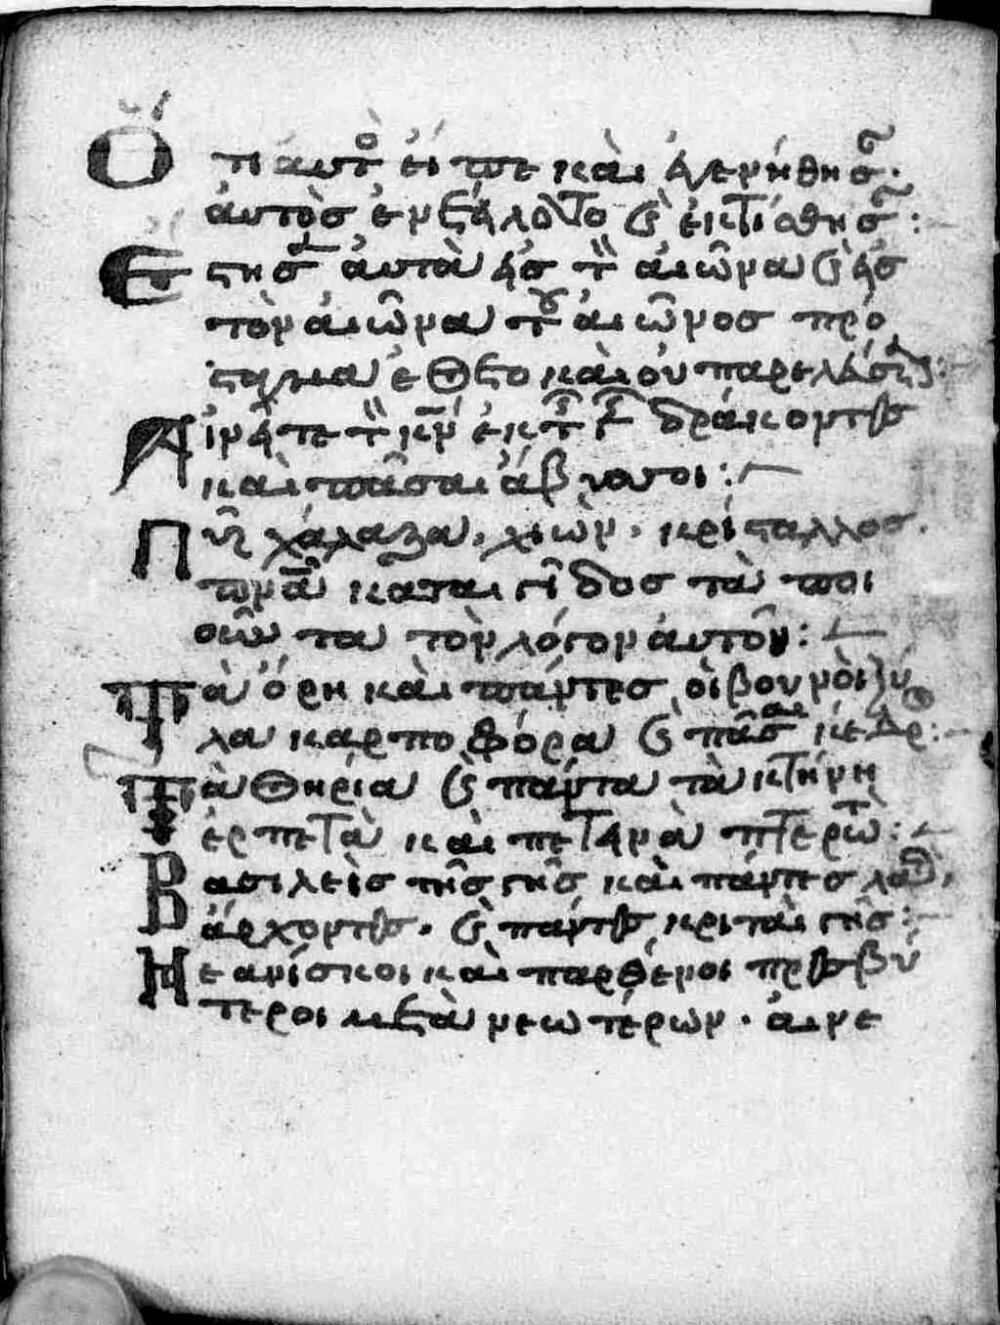 Ὅτι αὐτὸ εἶπε καὶ ἐγενήθησ·
αὐτὸσ ἐνετείλατο καὶ ἐκτίσθησ:
Ἔστησ αὐτὰ εἰσ τὸν αἰῶνα καὶ εἰσ
τὸν αἰῶνα τοῦ αἰῶνοσ πρό
σταγμα ἔθετο καὶ οὐ παρελεύσεται:
Αἰνεῖτε τὸν κν ἐκ τῆσ γῆσ δράκοντεσ
καὶ πᾶσαι ἄβυσσοι:
Πῦρ χάλαζα, χιὼν, κρίσταλλοσ.
πνα καταιγίδοσ τὰ ποι
οῦντα τὸν λόγον αὐτοῦ:
Τὰ ὄρη καὶ πάντεσ οἱ βουνοὶ ξύ
λα καρποφόρα καὶ πᾶσαι κέδρ:
Τὰ θηρία καὶ πάντα τὰ κτήνη
ἑρπετὰ καὶ πετεινὰ πτερωτὰ:
Βασιλεῖσ τῆσ γῆσ καὶ πάντεσ λαοὶ,
ἄρχοντεσ. καὶ πάντεσ κριταὶ γῆσ:
Νεανίσκοι καὶ παρθένοι πρεσβύ
τεροι μετὰ νεωτέρων. αἰνε